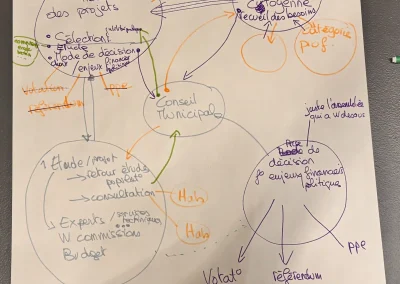 des projets
• Sélection
• Etude
• Mode de décision
enjeux financier
Votation
ppe
Citoyenne
recueil des besoins
Catégorie
prof.
Conseil
municipal
juste l'assemblée
qui a le dessus
de
décision
enjeux financiers
politiques
Etude/projet
→ retour étude
→ consultation
Hab
Hab
↓ Experts /
W commissions
Budget
Votat°
référendum
ppe